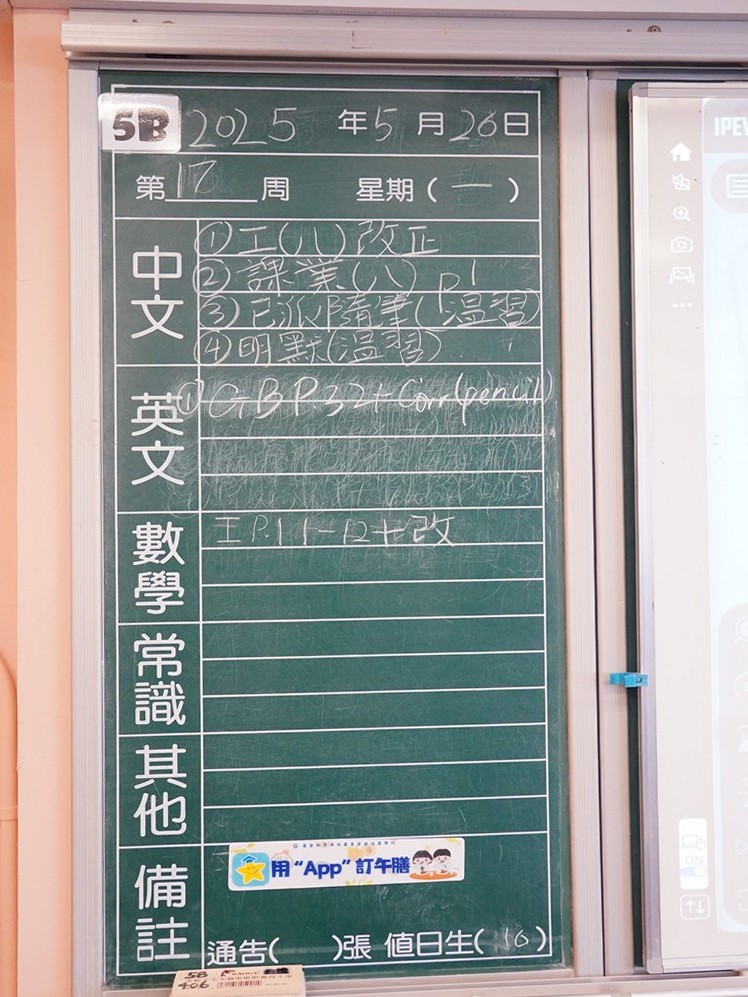 5B 2025年5月26日
第17周 星期(一)
中文
①工(八)改正
②課業(八)P1
③已派隨筆(溫習)
④明默(溫習)
英文
①GB P.32+Corr(pencil)
數學
工P.11-12+改
常識
其他
備註
用“App”訂午膳
通告( )張 值日生(16)
5B
406
IPEV
ON